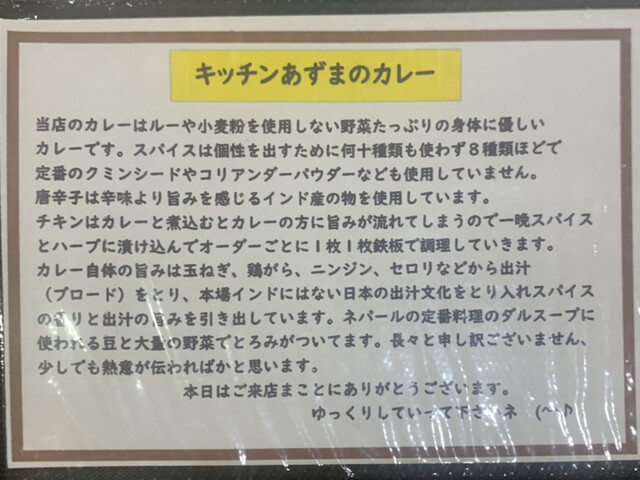 キッチンあずまのカレー
当店のカレーはルーや小麦粉を使用しない野菜たっぷりの身体に優しい
カレーです。スパイスは個性を出すために何十種類も使わず8種類ほどで
定番のクミンシードやコリアンダーパウダーなども使用していません。
唐辛子は辛味より旨みを感じるインド産の物を使用しています。
チキンはカレーと煮込むとカレーの方に旨みが流れてしまうので一晩スパイス
とハーブに漬け込んでオーダーごとに1枚1枚鉄板で調理していきます。
カレー自体の旨みは玉ねぎ、鶏がら、ニンジン、セロリなどから出汁
（ブロード）をとり、本場インドにはない日本の出汁文化をとり入れスパイス
の香りと出汁の旨みを引き出しています。ネパールの定番料理のダルスープに
使われる豆と大量の野菜でとろみがついてます。長々と申し訳ございません、
少しでも熱意が伝わればかと思います。
本日はご来店まことにありがとうございます。
ゆっくりしていって下さいネ (~♪